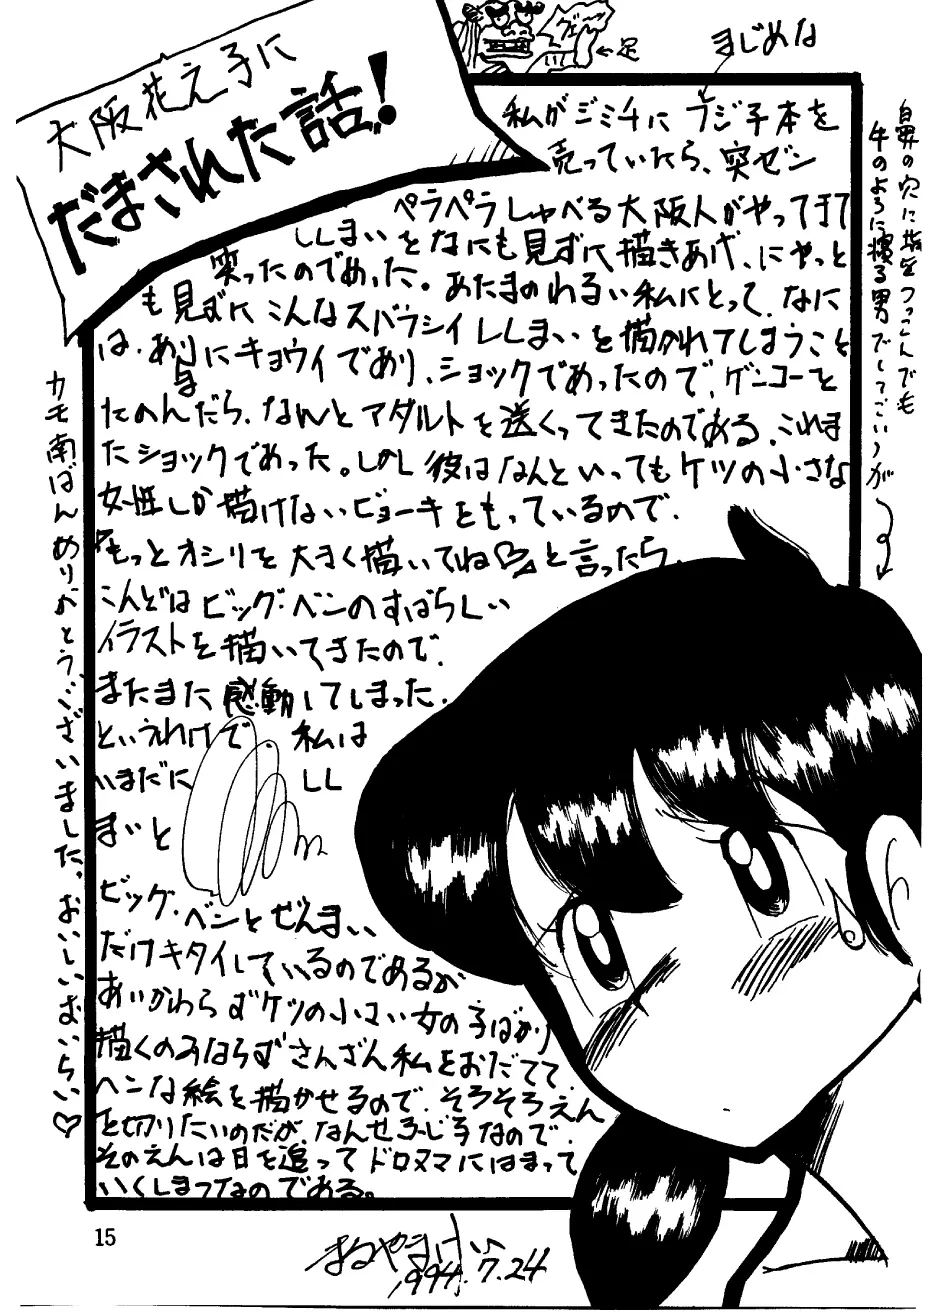 大阪花え子に
だまされた話!
ヴェー
←足
まじめな
私がジミチにフジ子本を
売っていたら、突ゼン
ペラペラしゃべる大阪人がやってきて
ししまいをなにも見ずに描きあげ、にやっと
笑ったのであった。あたまのわるい私にとって、なに
も見ずにこんなスバラシイししまいを描かれてしまうこと
は、ありにキョウイであり、ショックであったので、ゲンコーを
たのんだら、なんとアダルトを送くってきたのである。これま
たショックであった。しかし彼はなんといってもケツの小さな
女性しか描けないビョーキをもっているので、
『もっとオシリを大きく描いてね♡』と言ったら、
こんどはビッグ・ベンのすばらしい
イラストを描いてきたので、
またまた感動してしまった。
というわけで、私は
いまだに しし
まいと
ビッグ・ベンとぜんまい
だけキタイしているのであるが
あいかわらずケツの小さい女の子ばかり
描くのみならずさんざん私をおだてて、
ヘンな絵を描かせるので、そろそろえん
を切りたいのだが、なんせふじ子なので、
そのえんは日を追ってドロヌマにはまって
いくしまつなのである。
鼻の穴に指をつっこんでも
牛のように寝る男でしてございうが
カモ南ばんありがとうございました。おいしいおいらい♡
まるやまけい
1994.7.24
15